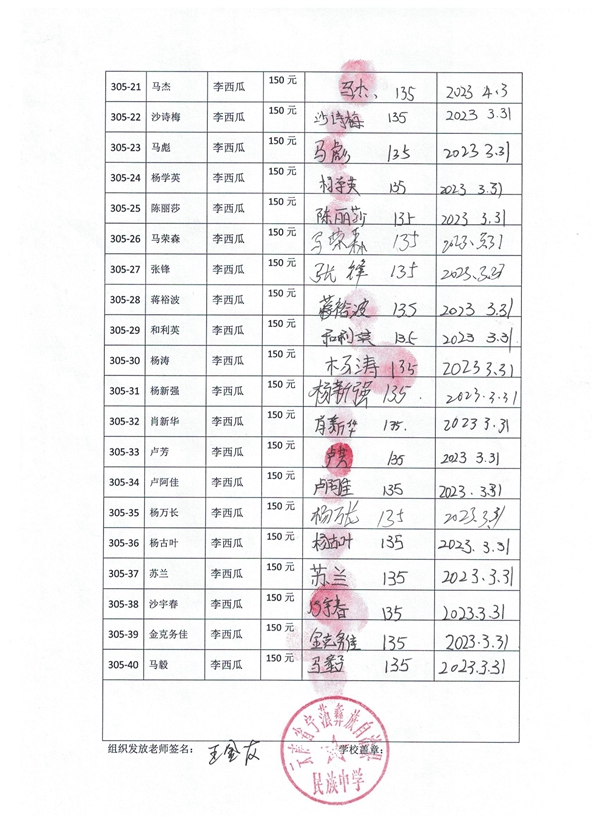 305-21 马杰 李西瓜 150 元 马杰、 135 2023 4.3
305-22 沙诗梅 李西瓜 150 元 沙诗梅 135 2023 3.31
305-23 马彪 李西瓜 150 元 马彪 135 2023 3.31
305-24 杨学英 李西瓜 150 元 杨学英 135 2023 3.31
305-25 陈丽莎 李西瓜 150 元 陈丽莎 135 2023 3.31
305-26 马荣森 李西瓜 150 元 马荣森 135 2023.3.31
305-27 张锋 李西瓜 150 元 张锋 135
305-28 蒋裕波 李西瓜 150 元 蒋裕波 135 2023 3.31
305-29 和利英 李西瓜 150 元 和利英 135 2023 3.31
305-30 杨涛 李西瓜 150 元 杨涛 135 2023.3.31
305-31 杨新强 李西瓜 150 元 杨新强 135. 2023.3.31
305-32 肖新华 李西瓜 150 元 肖新华 135. 2023 3.31
305-33 卢芳 李西瓜 150 元 卢芳 135 2023 3.31
305-34 卢阿佳 李西瓜 150 元 卢阿佳 135 2023.3.31
305-35 杨万长 李西瓜 150 元 杨万长 135 2023.3.31
305-36 杨古叶 李西瓜 150 元 杨古叶 135 2023.3.31
305-37 苏兰 李西瓜 150 元 苏兰 135 2023.3.31
305-38 沙宇春 李西瓜 150 元 沙宇春 135 2023.3.31
305-39 金克务佳 李西瓜 150 元 金克务佳 135 2023.3.31
305-40 马毅 李西瓜 150 元 马毅 135 2023.3.31
组织发放老师签名： 王金友 学校盖章：
云南省宁蒗彝族自治县
民族中学